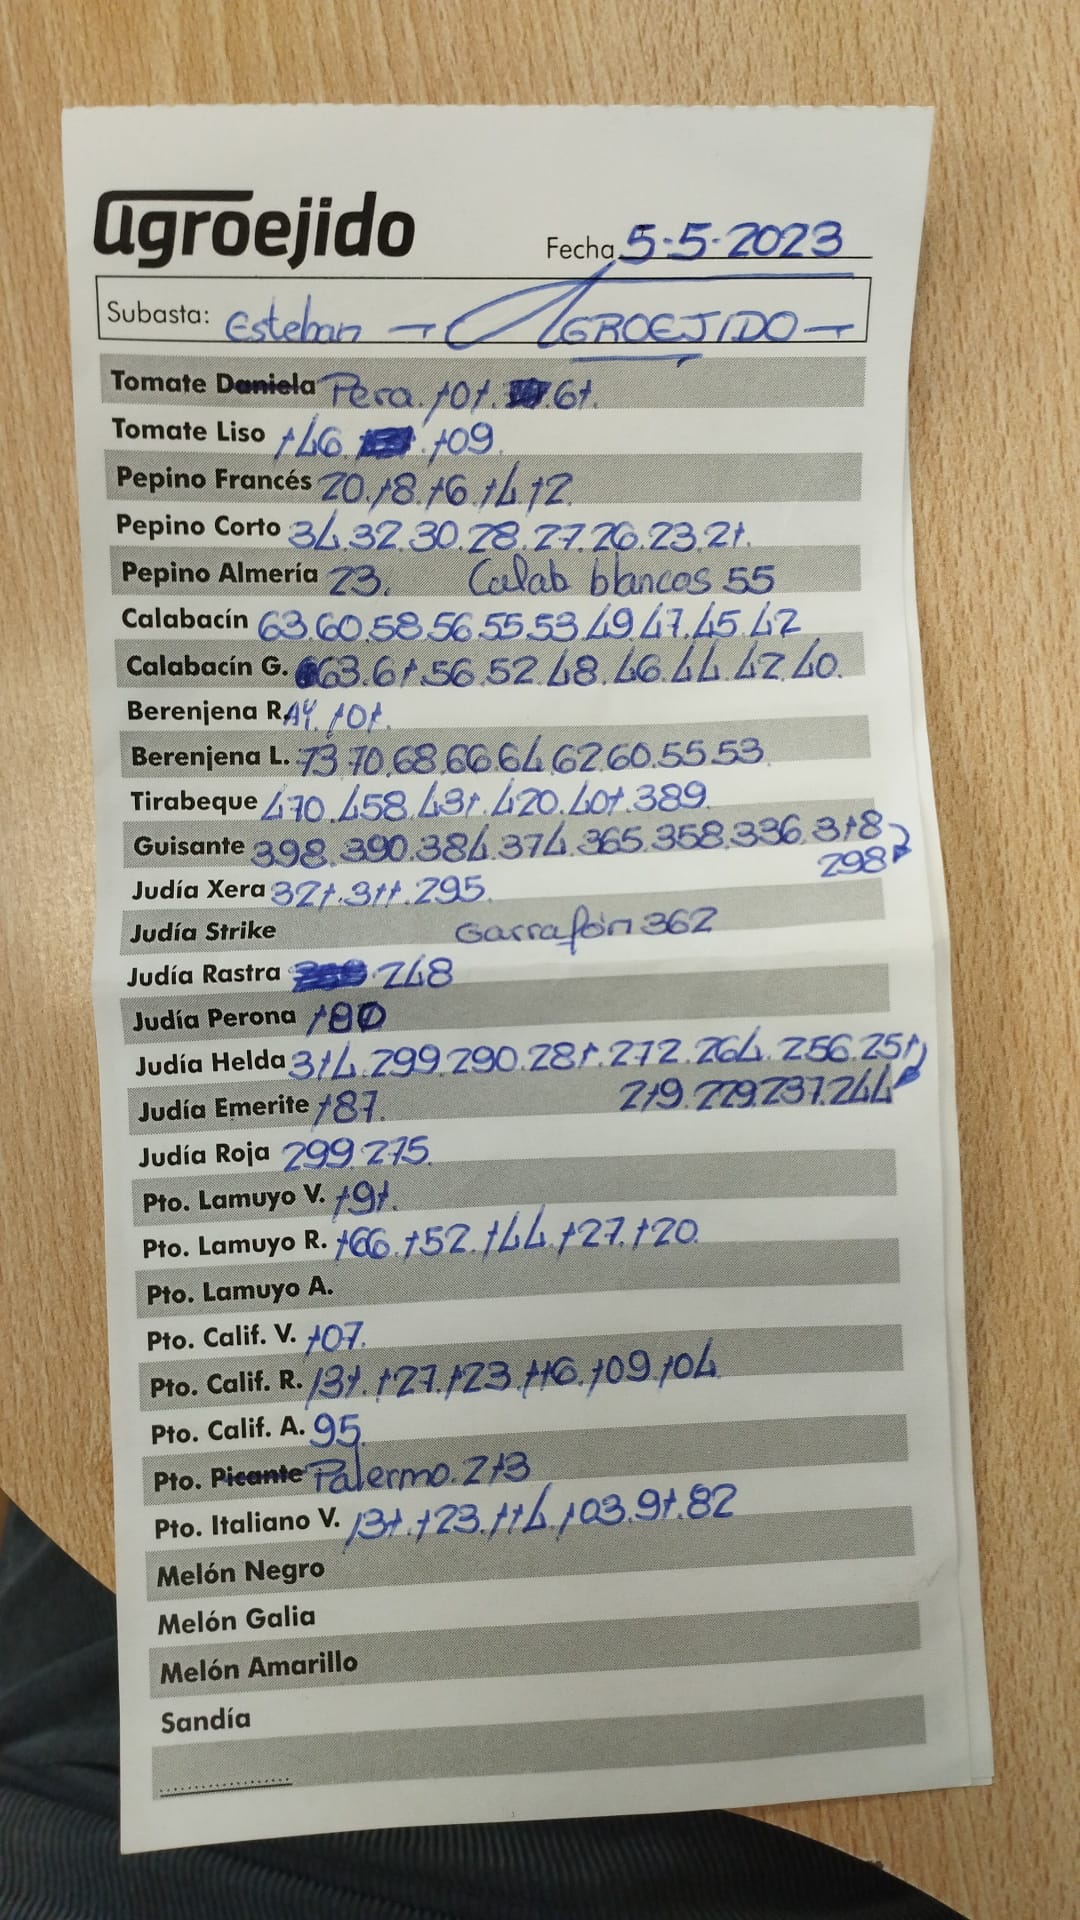 agroejido
Fecha 5-5-2023
Subasta: Esteban → AGROEJIDO
Tomate Daniela Pera. 101. 61.
Tomate Liso 146. 109.
Pepino Francés 20.18.16.14.12.
Pepino Corto 34.32.30.28.27.26.23.21.
Pepino Almería 23. Calab blancos 55
Calabacín 63.60.58.56.55.53.49.47.45.42
Calabacín G. 63.61.56.52.48.46.44.42.40.
Berenjena R. AY. 101.
Berenjena L. 73.70.68.66.64.62.60.55.53.
Tirabeque 470.458.431.420.401.389.
Guisante 398.390.384.374.365.358.336.318
298
Judía Xera 321.311.295.
Judía Strike Garrafón 362
Judía Rastra 248
Judía Perona 180
Judía Helda 314.299.290.281.272.264.256.251
Judía Emerite 187. 219.229.237.244
Judía Roja 299.275.
Pto. Lamuyo V. 191.
Pto. Lamuyo R. 166.152.144.127.120.
Pto. Lamuyo A.
Pto. Calif. V. 107.
Pto. Calif. R. 131.127.123.116.109.104
Pto. Calif. A. 95.
Pto. Picante Palermo. 213
Pto. Italiano V. 131.123.114.103.91.82
Melón Negro
Melón Galia
Melón Amarillo
Sandía